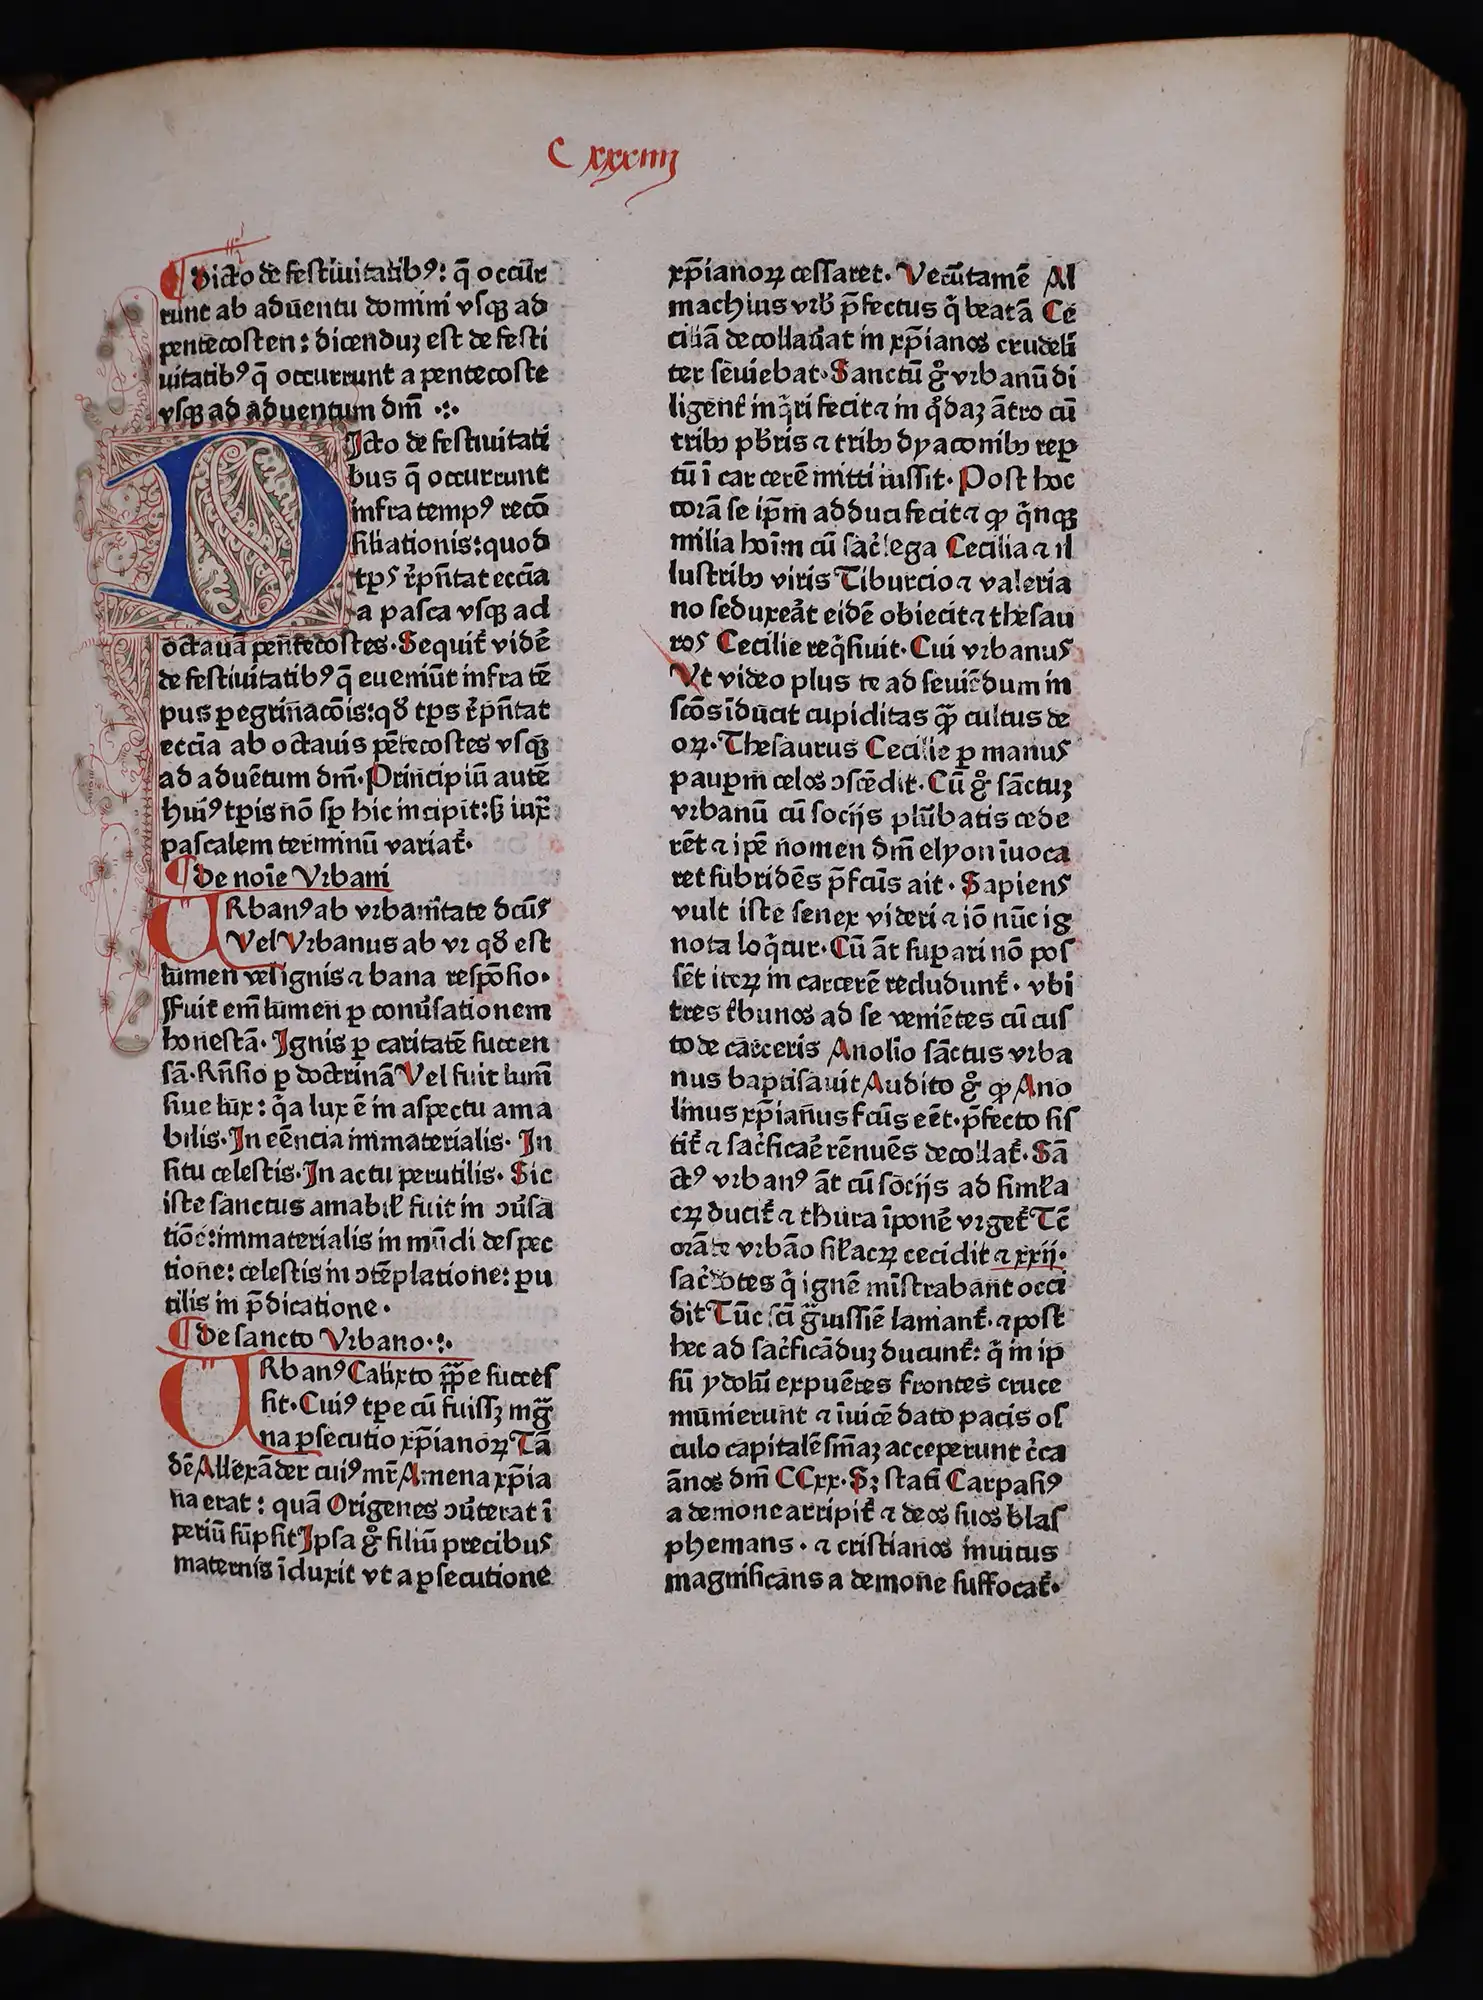 C xxxiiij
¶ Dicto de festiuitatibꝰ: q̄ occur
runt ab aduentu domini vsqꝫ ad
pentecosten: dicenduꝫ est de festi
uitatibꝰ q̄ occurrunt a pentecoste
vsqꝫ ad aduentum dm̄ .:.
DIcto de festiuitati
bus q̄ occurrunt
infra tempꝰ recō
siliationis: quod
tp̄s rēpn̄tat eccīa
a pasca vsqꝫ ad
octauā pentecostes. Sequit᷑ vidē
de festiuitatibꝰ q̄ eueniūt infra tē
pus ꝑegrinacōis: qd̄ tp̄s rēpn̄tat
eccīa ab octauis pētecostes vsqꝫ
ad aduētum dm̄. Principiū autē
huiꝰ tp̄is nō sꝑ hic incipit: sꝫ iuxͣ
pascalem terminū variat᷑.
¶ De noīe Vrbani
URbanꝰ ab vrbanitate dc̄us
Vel Vrbanus ab vr qd̄ est
lumen vel ignis ⁊ bana respōsio.
Fuit em̄ lumen ꝑ conūsationem
honestā. Ignis ꝑ caritatē succen
sā. Rn̄sio ꝑ doctrinā Vel fuit lum̄
siue lux: qͥa lux ē in aspectu ama
bilis. In eēncia immaterialis. In
situ celestis. In actu perutilis. Sic
iste sanctus amabil̄ fuit in ꝯūsa
tiōe: immaterialis in mūdi despec
tione: celestis in ꝯtēplatione: ꝑu
tilis in p̄dicatione.
¶ De sancto Vrbano.:.
URbanꝰ Calixto pp̄e succes
sit. Cuiꝰ tꝑe cū fuissꝫ mgͣ
na ꝑsecutio xp̄ianoꝝ Tā
dē Allexāder cuiꝰ mr̄ Amena xp̄ia
na erat: quā Origenes ꝯūterat ī
periū sūpsit Ipsa gͦ filiū precibus
maternis īduxit vt a ꝑsecutione
xp̄ianoꝝ cessaret. Vecūtamē Al
machius vrb̄ p̄fectus qͥ beatā Ce
ciliā decollauat in xp̄ianos crudeli
ter sēuiebat. Sanctū gͦ vrbanū di
ligent᷑ inqͥri fecit ⁊ in qͦdaꝫ ātro cū
tribꝫ p̄bris ⁊ tribꝫ dyaconibꝫ reꝑ
tū ī carcerē mitti iussit. Post hoc
corā se ip̄m adduci fecit ⁊ ꝙ qͥnqꝫ
milia hoīm cū sac̄lega Cecilia ⁊ il
lustribꝫ viris Tiburcio ⁊ valeria
no seduxeāt eidē obiecit ⁊ thesau
ros Cecilie reqͥsiuit. Cui vrbanus
Vt video plus te ad seuiēdum in
scōs īducit cupiditas qͣꝫ cultus de
oꝝ. Thesaurus Cecilie ꝑ manus
pauꝑm celos ꝯscēdit. Cū gͦ sāctuꝫ
vrbanū cū socijs plūbatis cede
rēt ⁊ ipē nomen dm̄ elyon īuoca
ret subridēs p̄fcūs ait. Sapiens
vult iste senex videri ⁊ iō nūc ig
nota loqͥtur. Cū āt suꝑari nō pos
sēt iteꝝ in carcerē recludunt᷑. vbi
tres t᷑bunos ad se veniētes cū cus
tode carceris Anolio sāctus vrba
nus baptisauit Audito gͦ ꝙ Ano
linus xp̄ianus fcūs eēt. p̄fecto sis
tit᷑ ⁊ sac̄ficaē rēnuēs decollat᷑. Sā
ctꝰ vrbanꝰ āt cū socijs ad simła
cꝝ ducit᷑ ⁊ thura īponē vrget᷑ Tē
orāte vrbāo siłacꝝ cecidit ⁊ xxij.
sac̄dotes qͥ ignē mīstrabant occi
dit Tūc scī gͣuissiē laniant᷑. ⁊ post
hec ad sac̄ficāduꝫ ducunt᷑: qͥ in ip
sū ydolū expuētes frontes cruce
munierunt ⁊ īuicē dato pacis os
culo capitalē sniaꝫ acceperunt c̄ca
ānos dm̄ CCxx. Sꝫ statī Carpasiꝰ
a demone arripit᷑ ⁊ deos suos blas
phemans. ⁊ cristianos inuitus
magnificans a demone suffocat᷑.